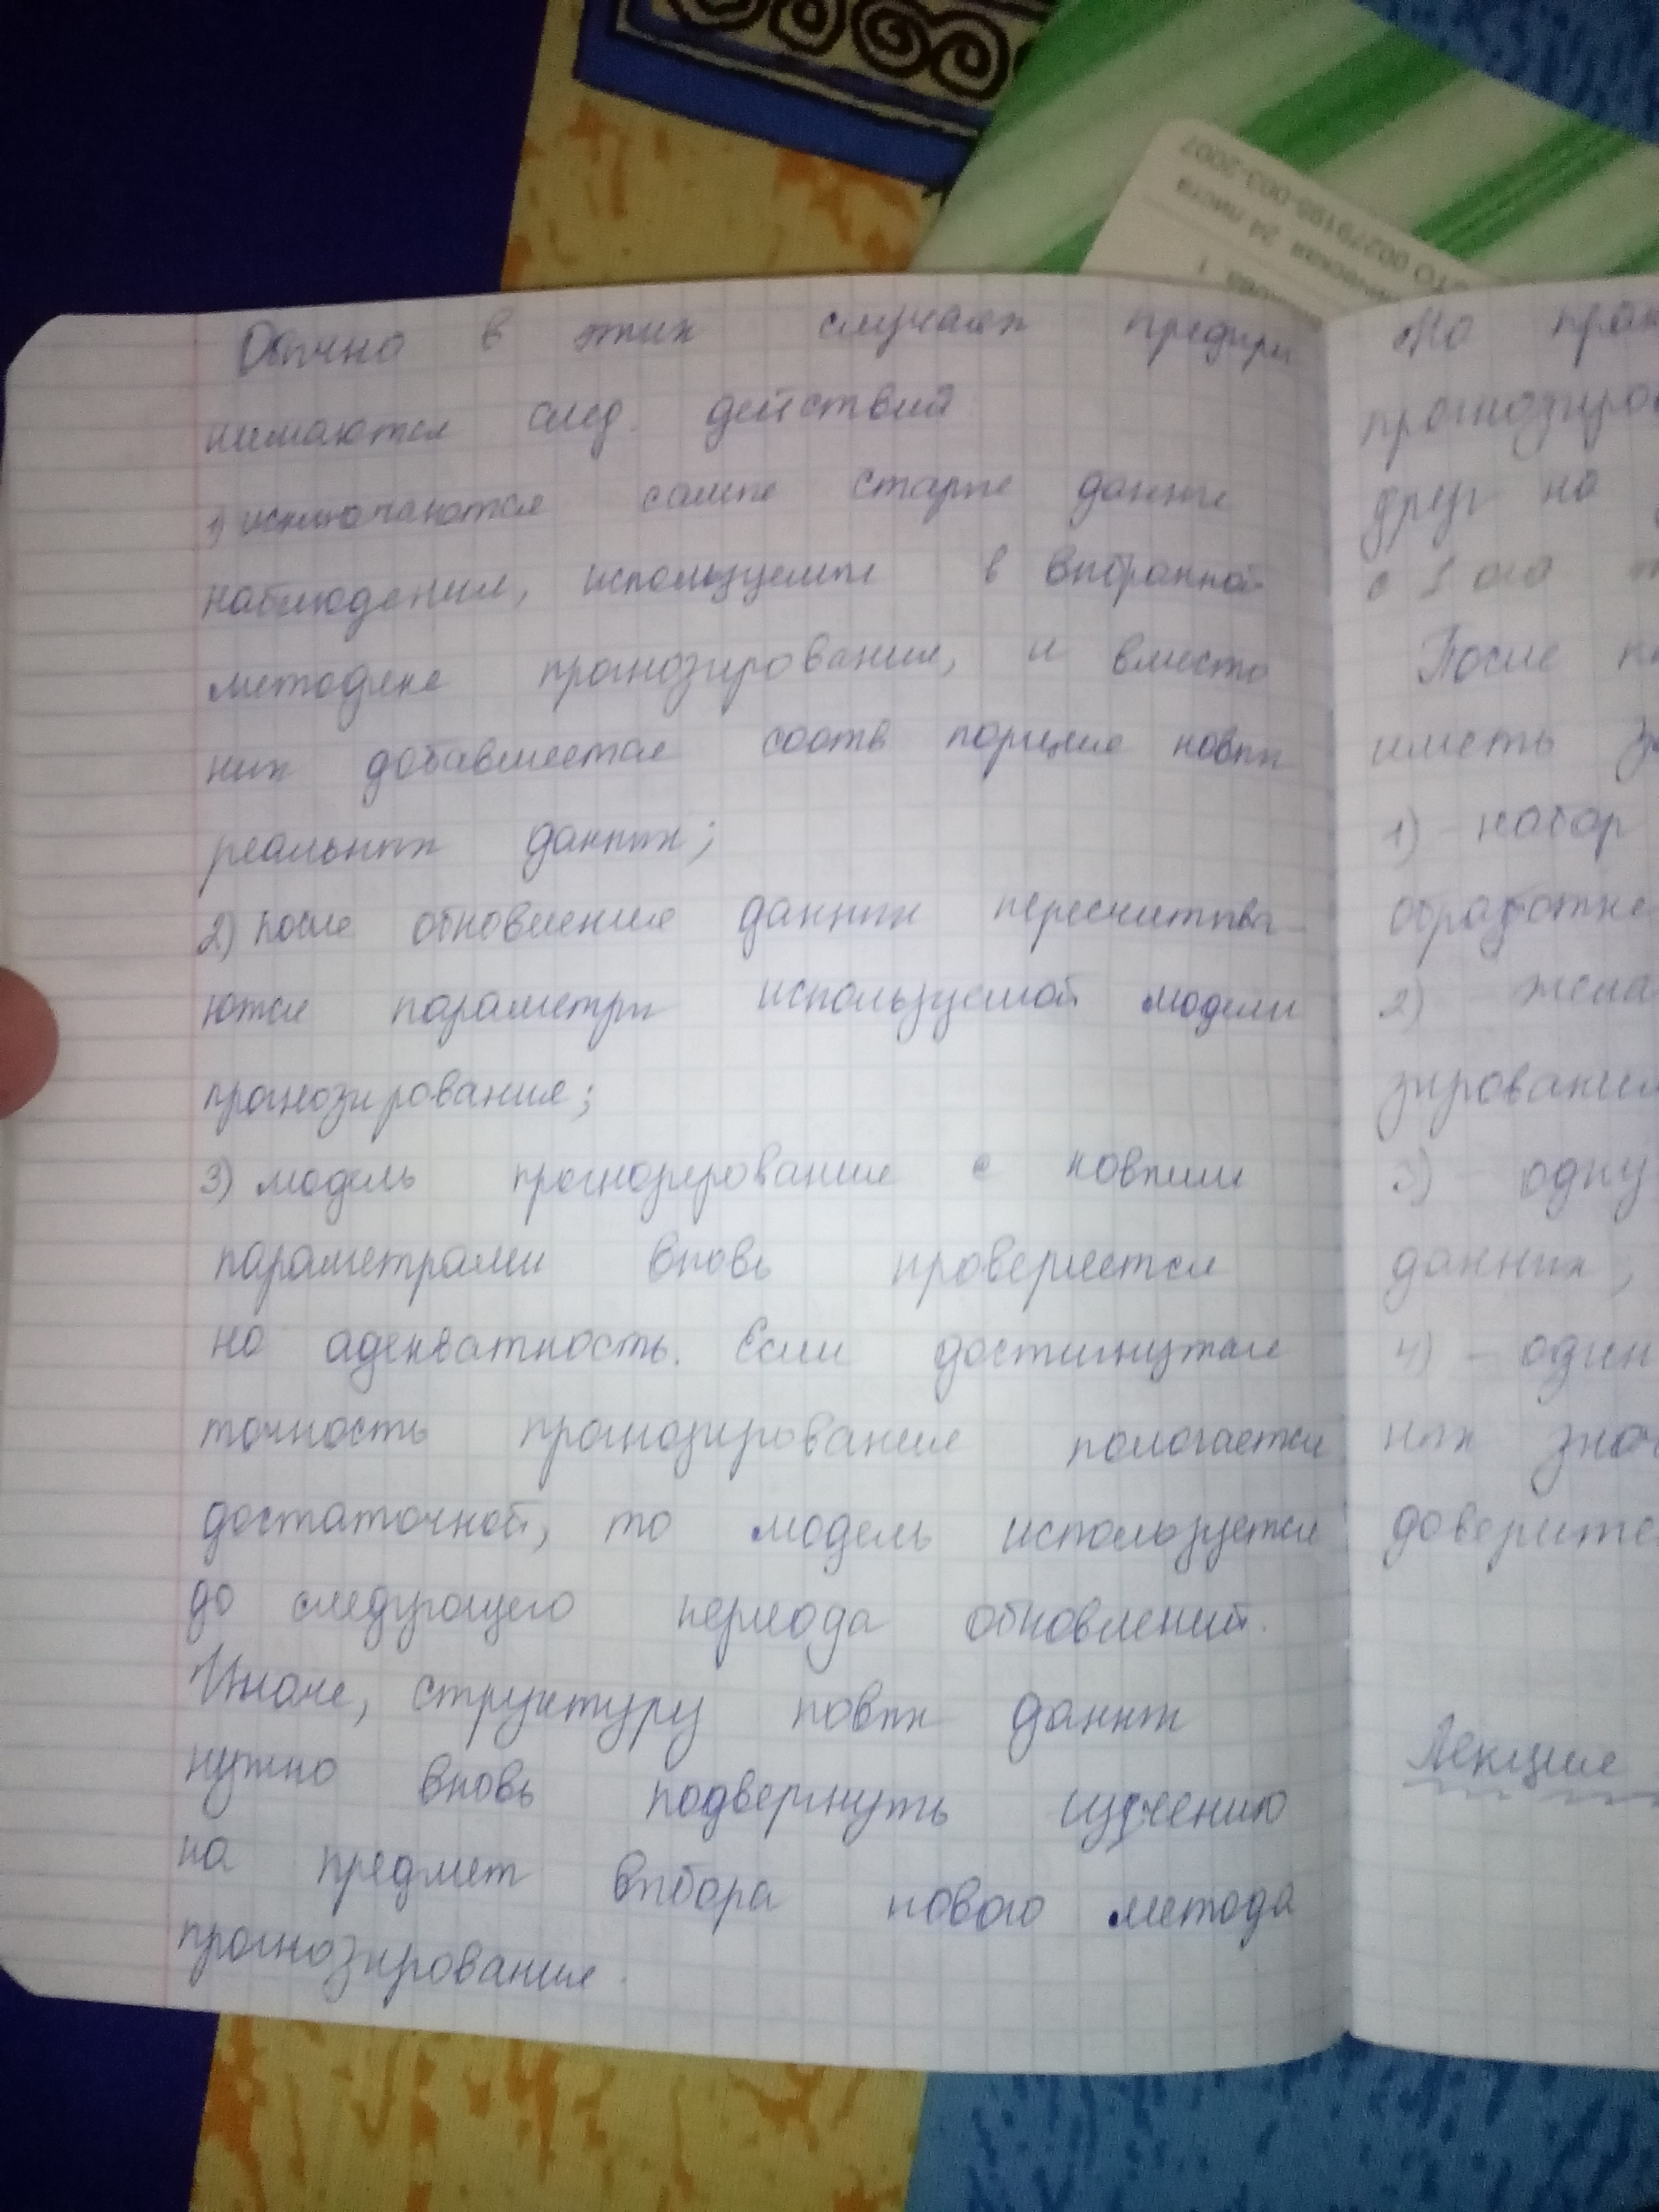 Обычно в этих случаях предпри
нимаются след. действия
1) исключаются самые старые данные
наблюдения, используемые в выбранной
методике прогнозирования, и вместо
них добавляется соотв порция новых
реальных данных;
2) после обновления данных пересчитыва-
ются параметры используемой модели
прогнозирования;
3) модель прогнозирования с новыми
параметрами вновь проверяется
на адекватность. Если достигнутая
точность прогнозирования пологается
достаточной, то модель используется
до следующего периода обновлений.
Иначе, структуру новых данных
нужно вновь подвергнуть изучению
на предмет выбора нового метода
прогнозирования.
На
друг на
После
иметь
1) - набор
обработке
2)
зирования
3) - одну
данных;
4) - один
ных
Лекция
24 листа
СТО 00279198-003-2007